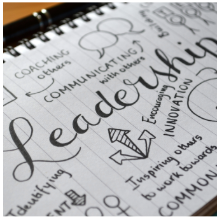 COACHING
others
COMMUNICATING
with others
Leadership
Encouraging
INNOVATION
Inspiring others
to work towards
COMMON